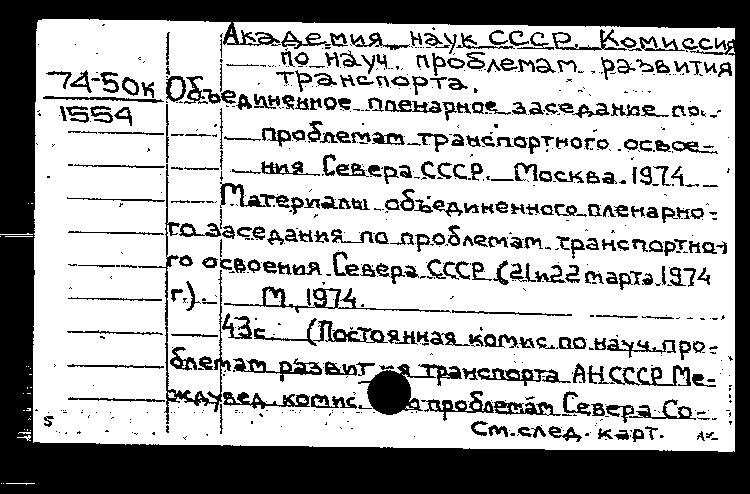 Академия наук СССР. Комиссия
по науч. проблемам развития
транспорта.
74-50к
1554
Объединенное пленарное заседание по
проблемам транспортного освое-
ния Севера СССР. Москва. 1974
Материалы объединенного пленарно-
го заседания по проблемам транспортно-
го освоения Севера СССР (21 и 22 марта 1974
г.). М., 1974.
43с. (Постоянная комис. по науч. про-
блемам развития транспорта АН СССР Ме-
ждувед. комис. проблемам Севера Со-
См. след. карт.
5